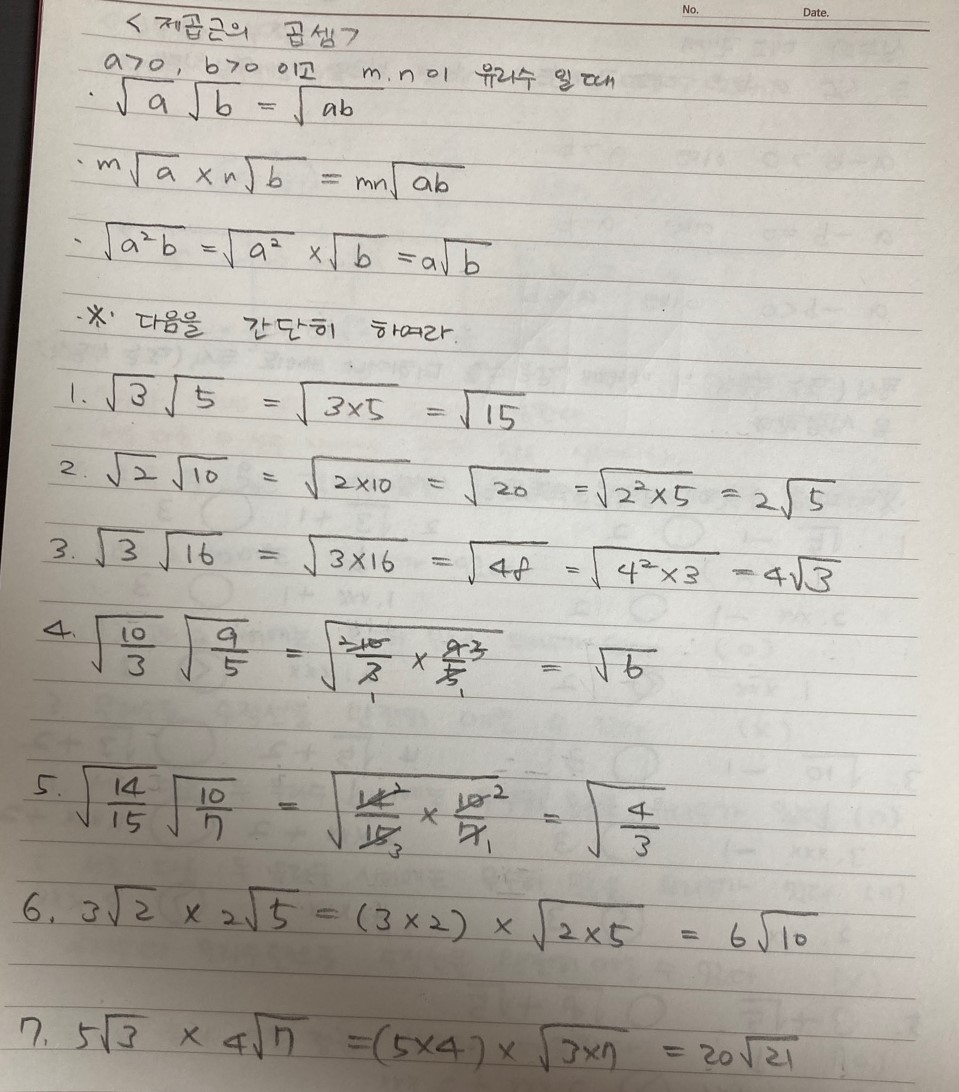 No. Date.
< 제곱근의 곱셈 >
a>0, b>0 이고 m.n이 유리수 일 때
· √a √b = √ab
· m√a × n√b = mn√ab
· √a²b = √a² × √b = a√b
※ 다음을 간단히 하여라.
1. √3 √5 = √3×5 = √15
2. √2 √10 = √2×10 = √20 = √2²×5 = 2√5
3. √3 √16 = √3×16 = √48 = √4²×3 = 4√3
4. √10/3 √9/5 = √10/3 × 9/5 = √6
5. √14/15 √10/7 = √14/15 × 10/7 = √4/3
6. 3√2 × 2√5 = (3×2) × √2×5 = 6√10
7. 5√3 × 4√7 = (5×4) × √3×7 = 20√21